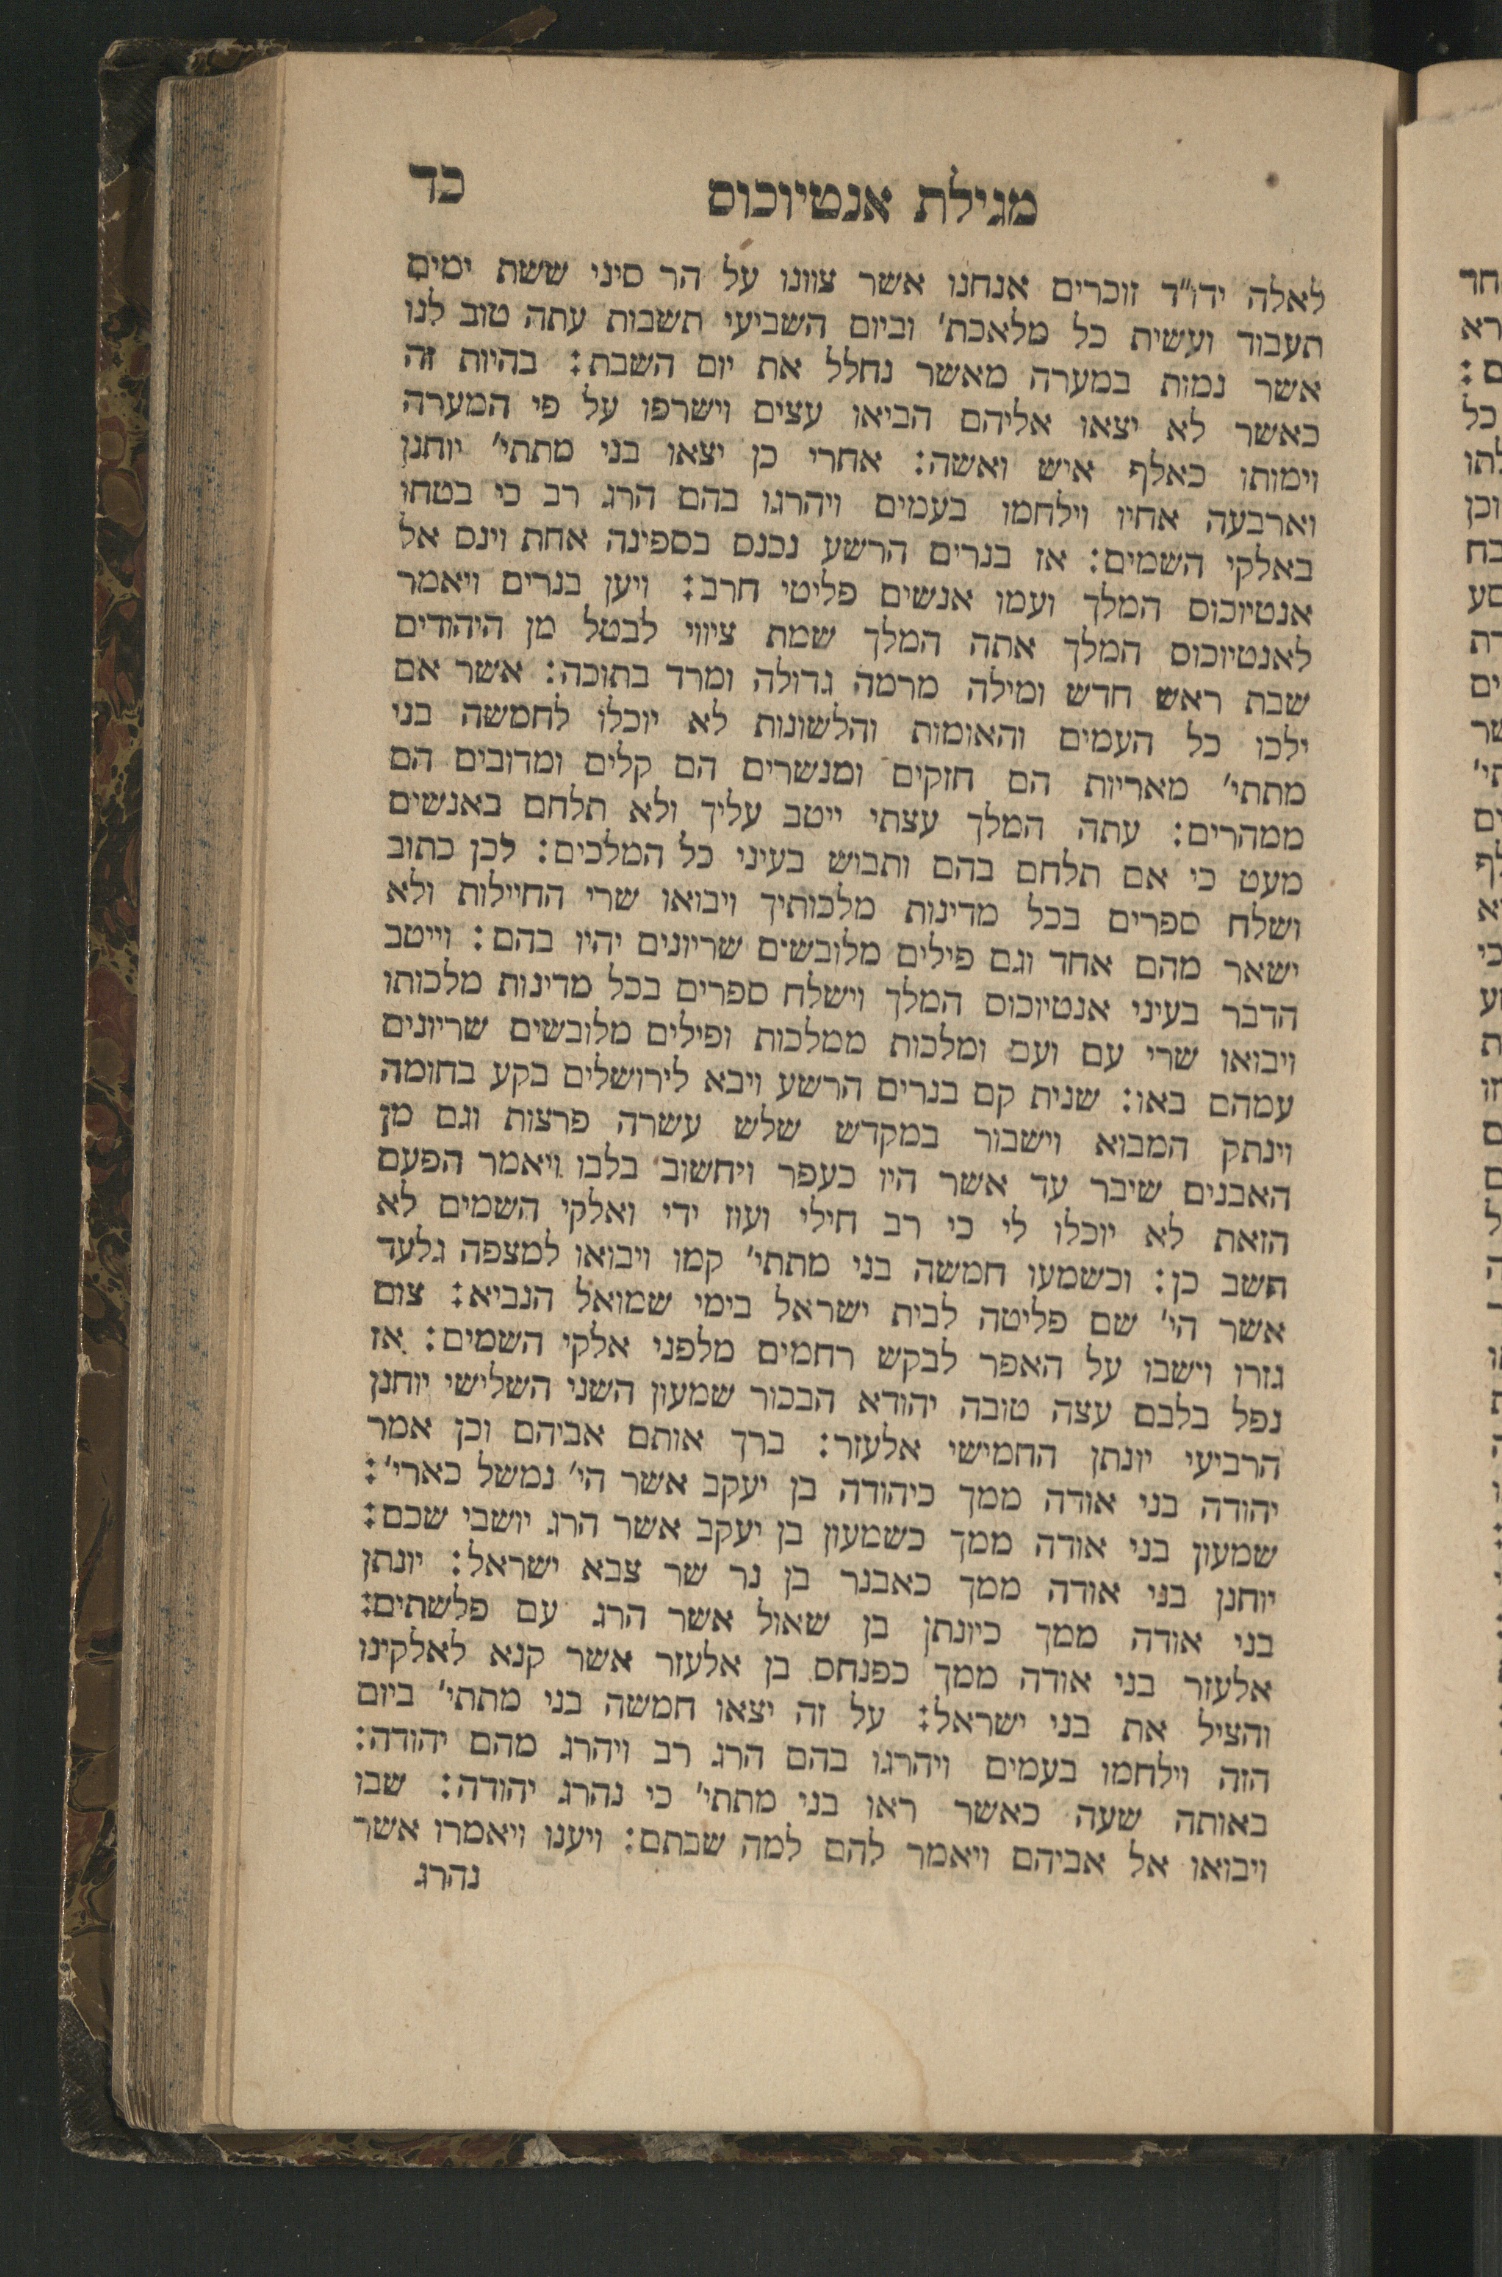 מגילת אנטיוכוס כד
לאלה ידו״ד זוכרים אנחנו אשר צוונו על הר סיני ששת ימים
תעבוד ועשית כל מלאכת׳ וביום השביעי תשבות עתה טוב לנו
אשר נמות במערה מאשר נחלל את יום השבת: בהיות זה
כאשר לא יצאו אליהם הביאו עצים וישרפו על פי המערה
וימותו כאלף איש ואשה: אחרי כן יצאו בני מתתי׳ יוחנן
וארבעה אחיו וילחמו בעמים ויהרגו בהם הרג רב כי בטחו
באלקי השמים: אז בגרים הרשע נכנס בספינה אחת וינס אל
אנטיוכוס המלך ועמו אנשים פליטי חרב: ויען בגרים ויאמר
לאנטיוכוס המלך אתה המלך שמת ציווי לבטל מן היהודים
שבת ראש חדש ומילה מרמה גדולה ומרד בתוכה: אשר אם
ילכו כל העמים והאומות והלשונות לא יוכלו לחמשה בני
מתתי׳ מאריות הם חזקים ומנשרים הם קלים ומדובים הם
ממהרים: עתה המלך עצתי ייטב עליך ולא תלחם באנשים
מעט כי אם תלחם בהם ותבוש בעיני כל המלכים: לכן כתוב
ושלח ספרים בכל מדינות מלכותיך ויבואו שרי החיילות ולא
ישאר מהם אחד וגם פילים מלובשים שריונים יהיו בהם: וייטב
הדבר בעיני אנטיוכוס המלך וישלח ספרים בכל מדינות מלכותו
ויבואו שרי עם ועם ומלכות ממלכות ופילים מלובשים שריונים
עמהם באו: שנית קם בגרים הרשע ויבא לירושלים בקע בחומה
וינתק המבוא וישבור במקדש שלש עשרה פרצות וגם מן
האבנים שיבר עד אשר היו כעפר ויחשוב בלבו ויאמר הפעם
הזאת לא יוכלו לי כי רב חילי ועוז ידי ואלקי השמים לא
חשב כן: וכשמעו חמשה בני מתתי׳ קמו ויבואו למצפה גלעד
אשר הי׳ שם פליטה לבית ישראל בימי שמואל הנביא: צום
גזרו וישבו על האפר לבקש רחמים מלפני אלקי השמים: אז
נפל בלבם עצה טובה יהודא הבכור שמעון השני השלישי יוחנן
הרביעי יונתן החמישי אלעזר: ברך אותם אביהם וכן אמר
יהודה בני אודה ממך כיהודה בן יעקב אשר הי׳ נמשל כארי׳:
שמעון בני אודה ממך כשמעון בן יעקב אשר הרג יושבי שכם:
יוחנן בני אודה ממך כאבנר בן נר שר צבא ישראל: יונתן
בני אודה ממך כיונתן בן שאול אשר הרג עם פלשתים:
אלעזר בני אודה ממך כפנחס בן אלעזר אשר קנא לאלקינו
והציל את בני ישראל: על זה יצאו חמשה בני מתתי׳ ביום
הזה וילחמו בעמים ויהרגו בהם הרג רב ויהרג מהם יהודה:
באותה שעה כאשר ראו בני מתתי׳ כי נהרג יהודה: שבו
ויבואו אל אביהם ויאמר להם למה שבתם: ויענו ויאמרו אשר
נהרג